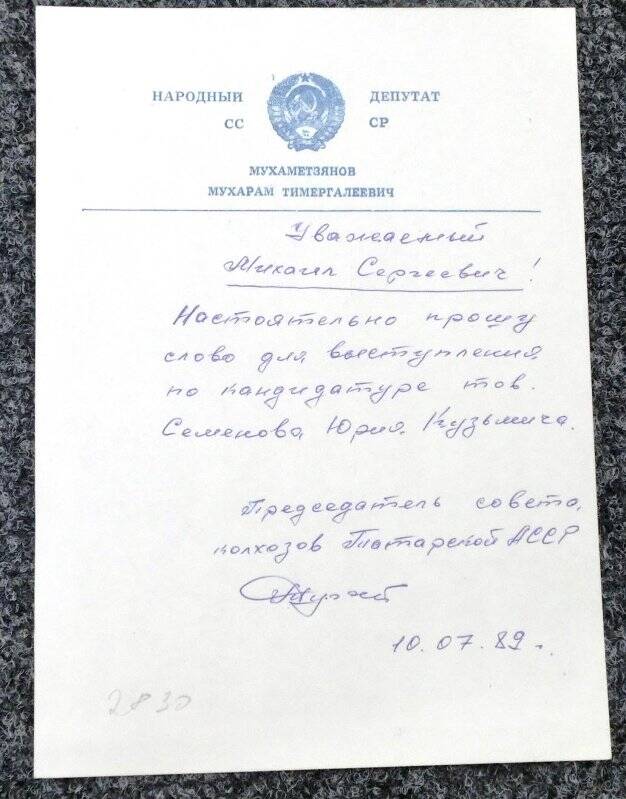 НАРОДНЫЙ ДЕПУТАТ
СС СР
МУХАМЕТЗЯНОВ
МУХАРАМ ТИМЕРГАЛЕЕВИЧ
Уважаемый
Михаил Сергеевич!
Настоятельно прошу
слово для выступления
по кандидатуре тов.
Семенова Юрия Кузьмича.
Председатель совета
колхозов Татарской АССР
10.07.89 г.
2830